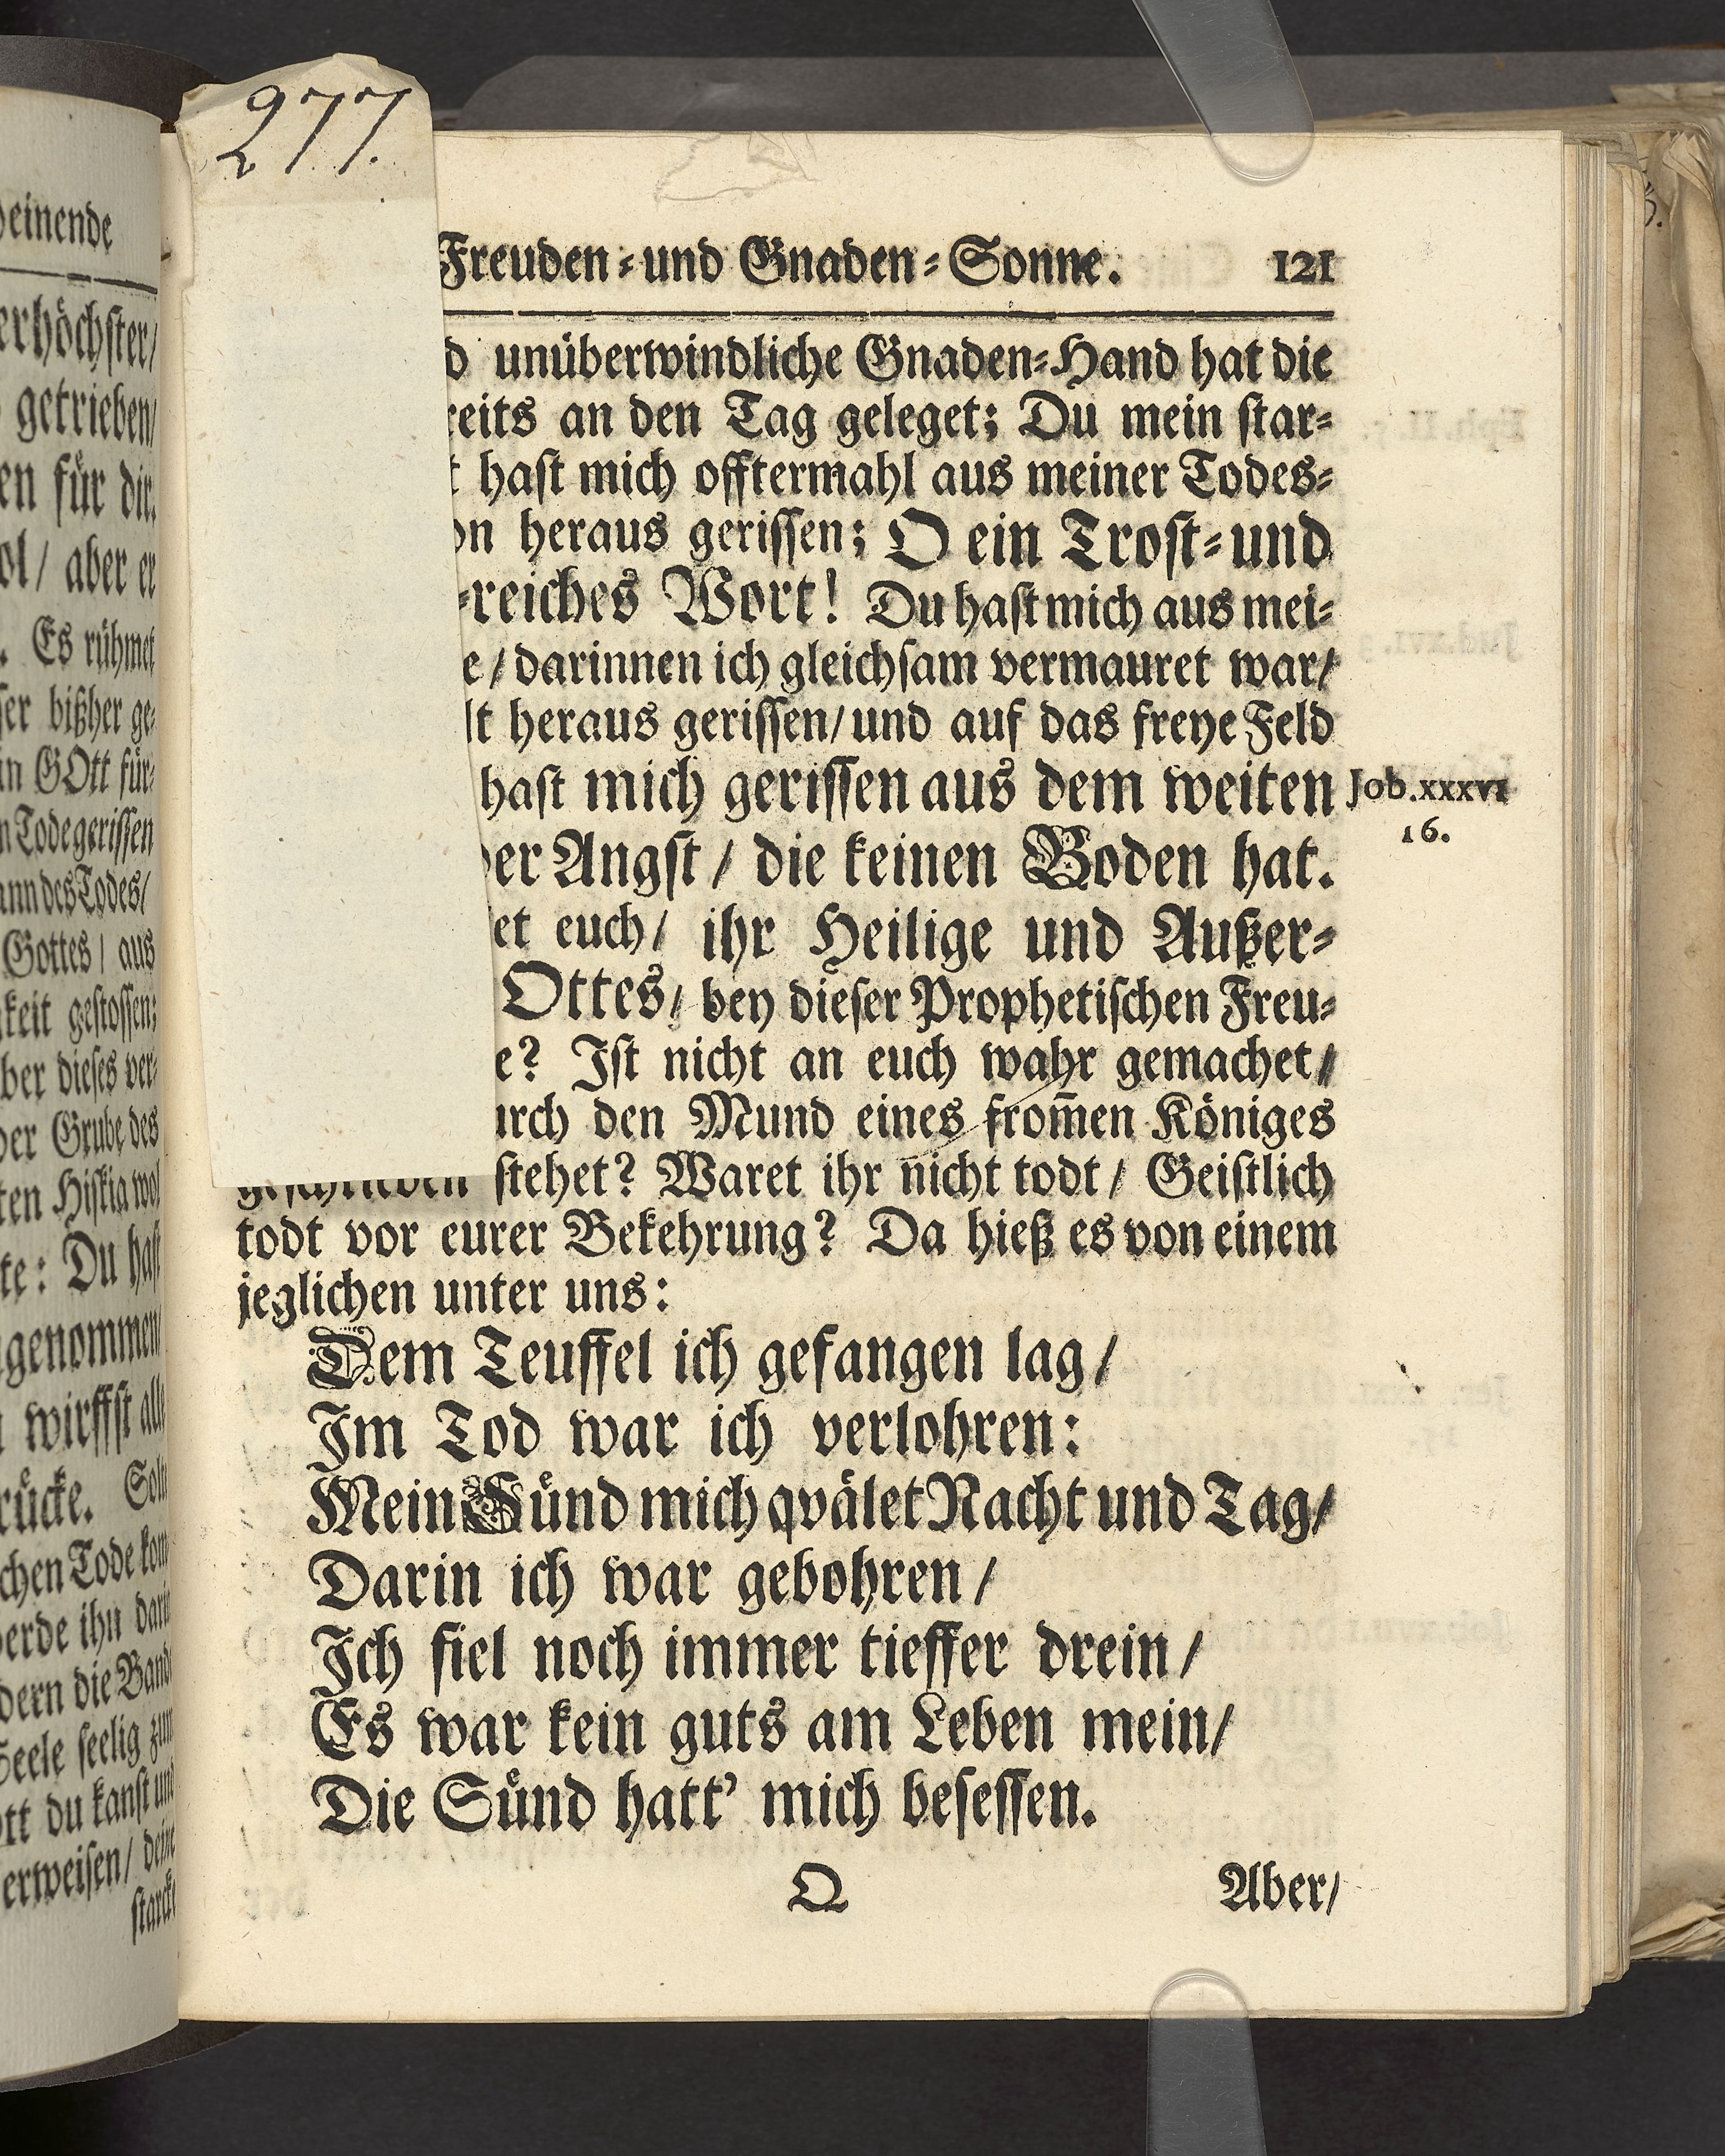 277.
Freuden⸗und Gnaden⸗Sonne. 121
unüberwindliche Gnaden⸗Hand hat die
an den Tag geleget; Du mein star⸗
hast mich offtermahl aus meiner Todes⸗
heraus gerissen; O ein Trost⸗und
⸗reiches Wort! Du hast mich aus mei⸗
/ darinnen ich gleichsam vermauret war/
heraus gerissen/ und auf das freye Feld
hast mich gerissen aus dem weiten
Job. XXXVI
16.
der Angst / die keinen Boden hat.
euch/ ihr Heilige und Außer⸗
Ottes/ bey dieser Prophetischen Freu⸗
e? Ist nicht an euch wahr gemachet/
den Mund eines from̃en Königes
geschrieben stehet? Waret ihr nicht todt/ Geistlich
todt vor eurer Bekehrung? Da hieß es von einem
jeglichen unter uns:
Dem Teuffel ich gefangen lag/
Im Tod war ich verlohren:
Mein Sünd mich qvälet Nacht und Tag/
Darin ich war gebohren/
Ich fiel noch immer tieffer drein/
Es war kein guts am Leben mein/
Die Sünd hatt' mich besessen.
Q Aber/
einende
erhöchster/
getrieben/
für dir.
aber er
Es rühmet
bißher ge⸗
GOtt für⸗
Tode gerissen
des Todes/
Gottes/ aus
gestossen;
dieses ver⸗
Grube des
Hiskia wol
Du hast
genommen/
wirffst alle
Tode kom⸗
ihn darin
die Band
Seele seelig zum
du kanst und
erweisen/ deine
starcke